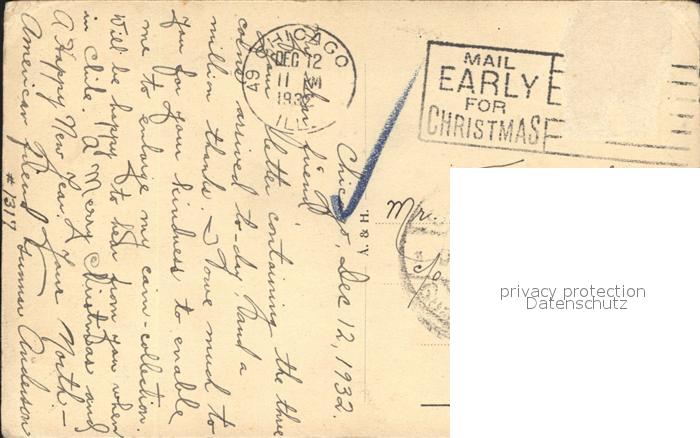 Chicago, Dec 12, 1932.
My dear friend
Your letter containing the three
coins arrived to-day and a
million thanks. I owe much to
you for your kindness to enable
me to enlarge my coin-collection.
Will be happy to hear from you when
in Chile. A Merry Christmas and
A Happy New Year. Your North-
American friend Gunnar Anderson
# 317
CHICAGO
DEC 12
11
193
ILL
49
MAIL
EARLY
FOR
CHRISTMAS
A. & H.
Mr.
privacy protection
Datenschutz